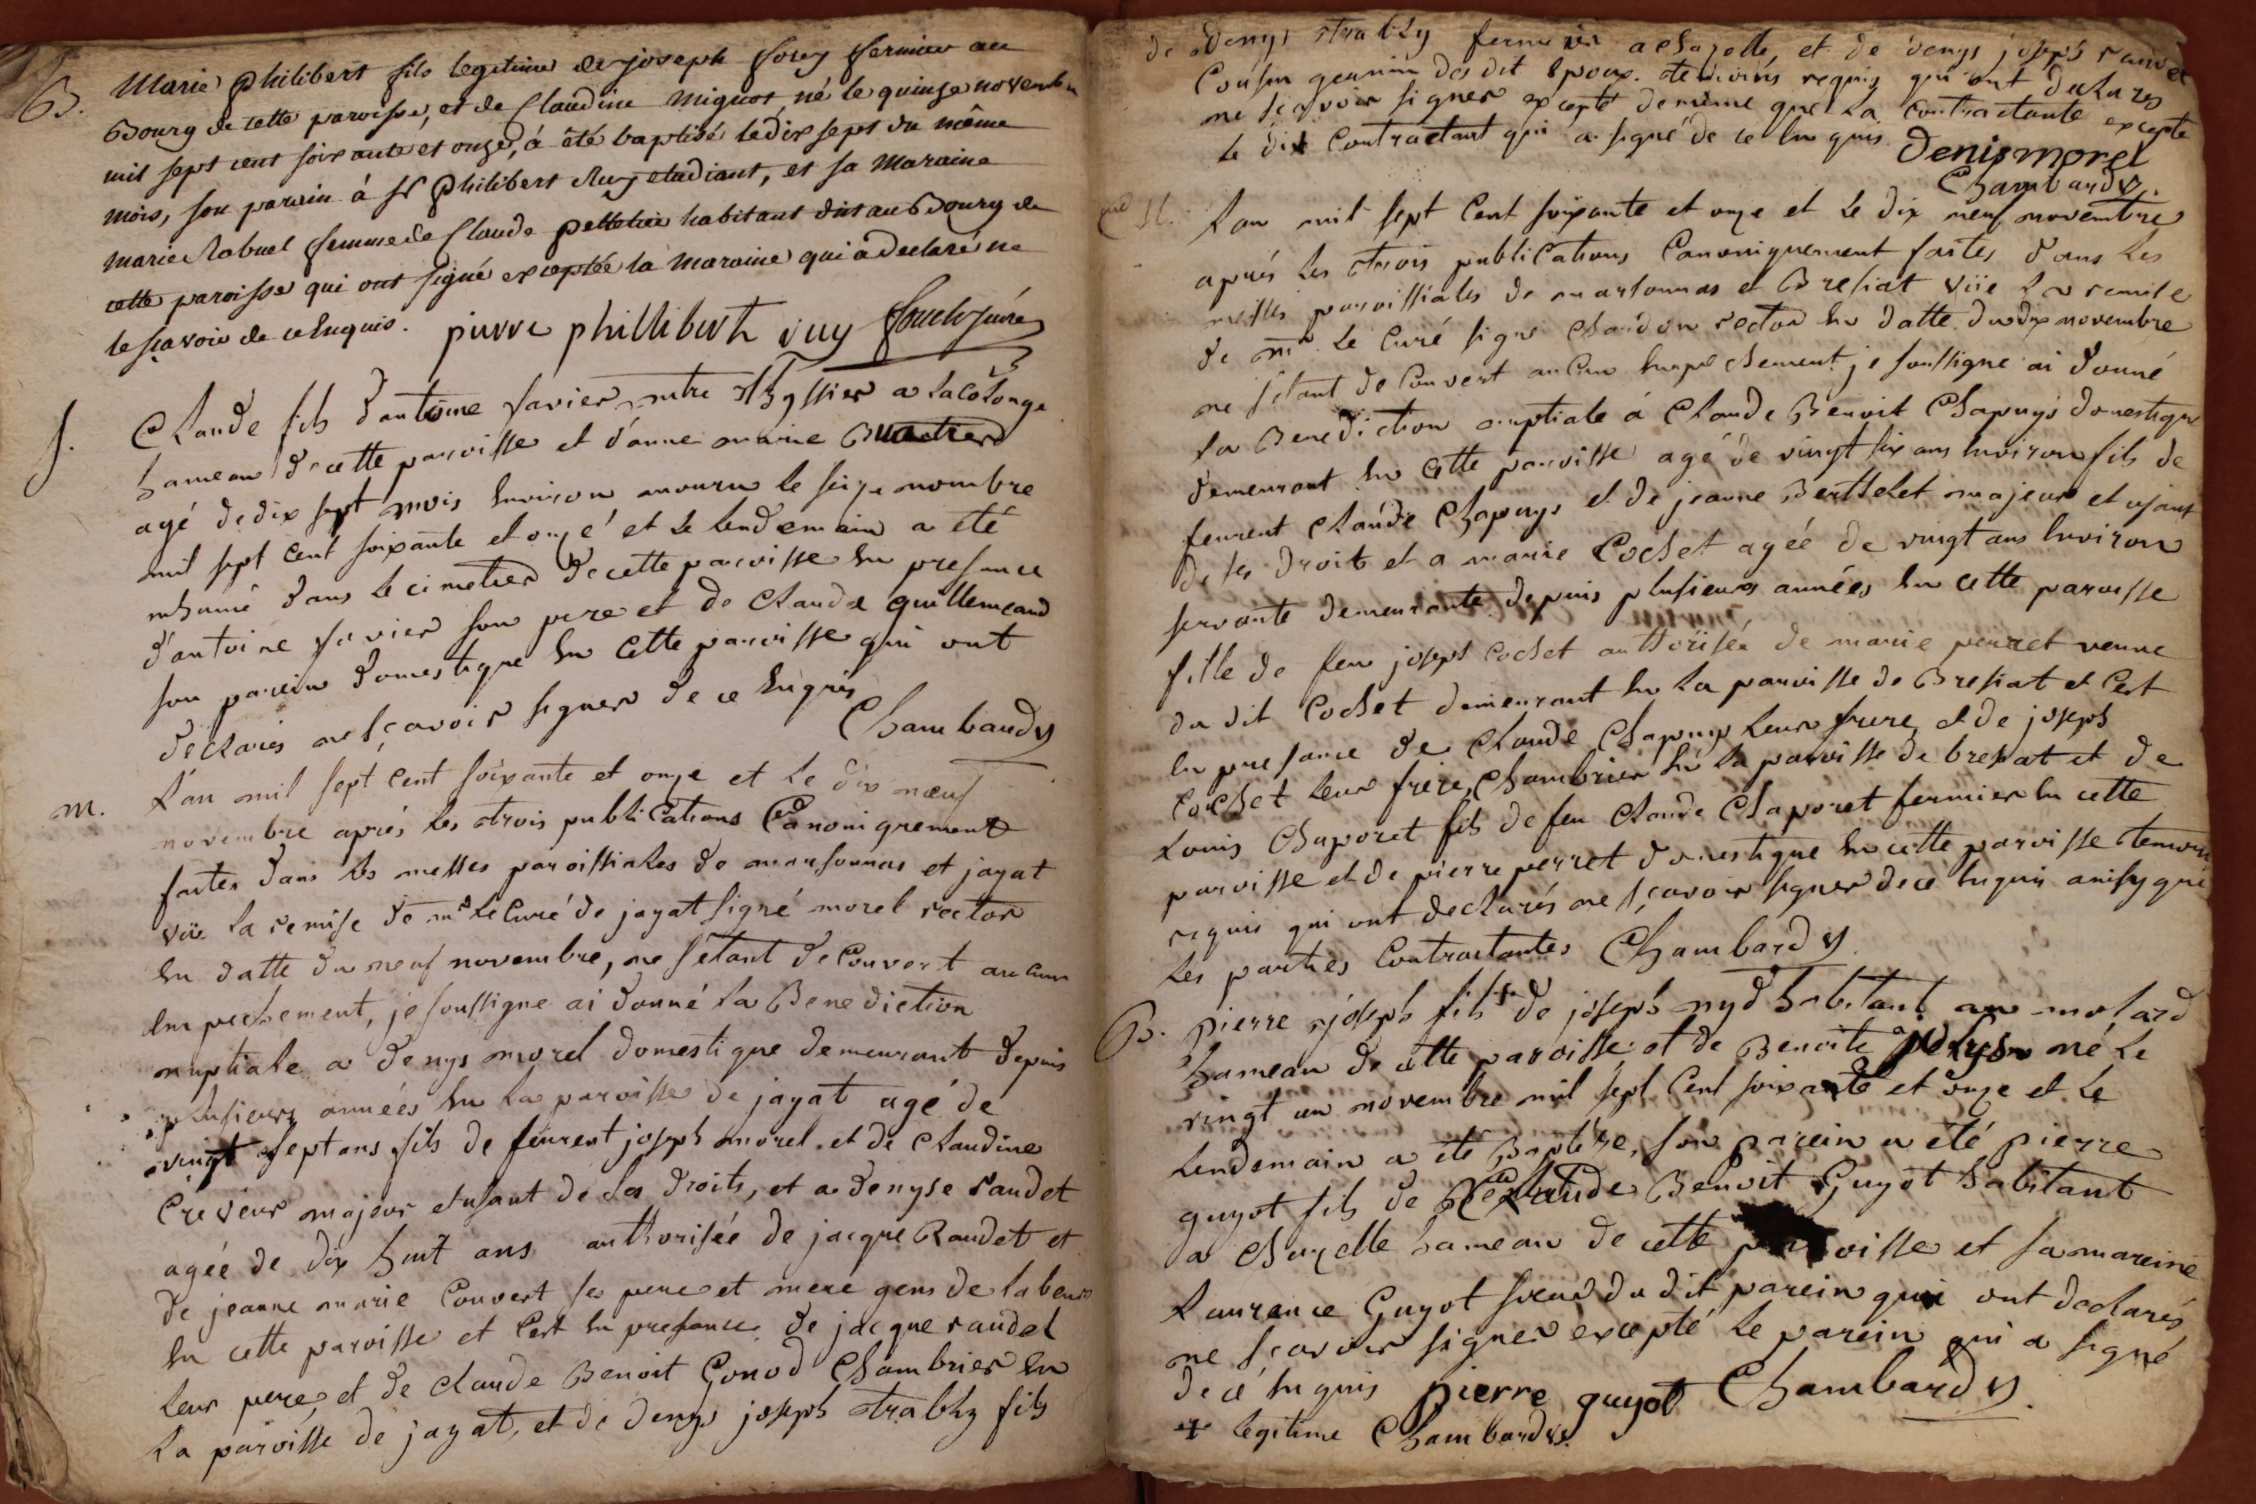 B. Marie Philibert fils legitime de joseph fermier au
Bourg de cette paroisse, et de Claudine Miguet né le quinze novembre
mil sept cent soixante et onze, á été baptisé le dix sept du même
mois, son parain á Sr Philibert Ruy etudiant, et sa Maraine
Marie Rabuel femme de Claude pelletier habitant dit au Bourg de
cette paroisse qui ont signé exceptée la Maraine qui a declaré ne
le sçavoir de ce Enquis. pierre phillibert ruy
S. Claude fils d'antoine favier a la Colonge
hameau de cette paroisse et d'anne marie
agé de dix sept mois Environ mouru le seize nombre
mil sept Cent soixante et onze et le lendemain a été
inhumé dans le cimetier de cette paroisse En presance
d'antoine favier son pere et de Claude guillemaud
son parein domestique En Cette paroisse qui ont
declarés ne sçavoir signer de ce Enquis
Chambard
m. L'an mil sept Cent soixante et onze et le dix neuf
novembre aprés les trois publications Canoniquement
faites dans les messes paroissiales de marsonnas et jayat
vüe la remise de mr le Curé de jayat signé morel rector
En datte du neuf novembre, ne s'étant deCouvert aucun
Empechement, je soussigne ai donné la Benediction
nuptiale a denys morel domestique demeurant depuis
plusieurs années En la paroisse de jayat agé de
vingt sept ans fils de feurent joseph morel et de claudine
Creveur majeur et usant de ses droits, et a denyse raudet
agée de dix huit ans authorisée de jacque Raudet et
de jeanne marie Couvert ses pere et mere gens de labeur
En cette paroisse et C'est En presance de jacque raudet
leur pere, et de claude Benoit Gonod Chambrier En
la paroisse de jayat, et de denys joseph strably fils
de denys strably fermier a chazelle, et de denys joseph raudet
Cousin germain des dit Epoux temoins requis qui ont declarés
ne sçavoir signer excepté de même que la Contractante excepté
le dit Contractant qui a signé de ce Enquis Denis morel
Chambard
M. L'an mil sept Cent soixante et onze et le dix neuf novembre
aprés les trois publications Canoniquement faites dans les
messes paroissiales de marsonnas et Bresiat vüe la remise
de mr le Curé signé chardon rector En datte du dix novembre
ne s'étant deCouvert aucun Empechement je soussigne ai donné
la Benediction nuptiale á Claude Benoit Chapuys domestique
demeurant En Cette paroisse agé de vingt six ans Environ fils de
feurent Claude Chapuys et de jeanne Berthelet majeur et usant
de ses droits et a marie Cochet agée de vingt ans Environ
servante demeurante depuis plusieurs années En cette paroisse
fille de feu joseph Cochet authorisée de marie perret veuve
du dit Cochet demeurant En la paroisse de Bresiat et C'est
En presance de Claude Chapuys leur frere et de joseph
Cochet leur frere, Chambrier En la paroisse de bresiat et de
Louis Chaporet fils de feu Claude Chaporet fermier En cette
paroisse et de pierre perret domestique En cette paroisse temoins
requis qui ont declarés ne sçavoir signer de ce Enquis ainsy que
les parties Contractantes Chambard
B. pierre joseph fils + de joseph nyd habitant au molard
hameau de cette paroisse et de Benoite né le
vingt un novembre mil sept Cent soixante et onze et le
Lendemain a été Baptisée, son parein a été pierre
guyot fils de Claude Benoit Guyot habitant
a Chazelle hameau de cette paroisse et sa mareine
Laurence Guyot soeur du dit parein qui ont declarés
ne sçavoir signer excepté le parein qui a signé
de ce Enquis pierre guyot Chambard
+ legitime Chambard